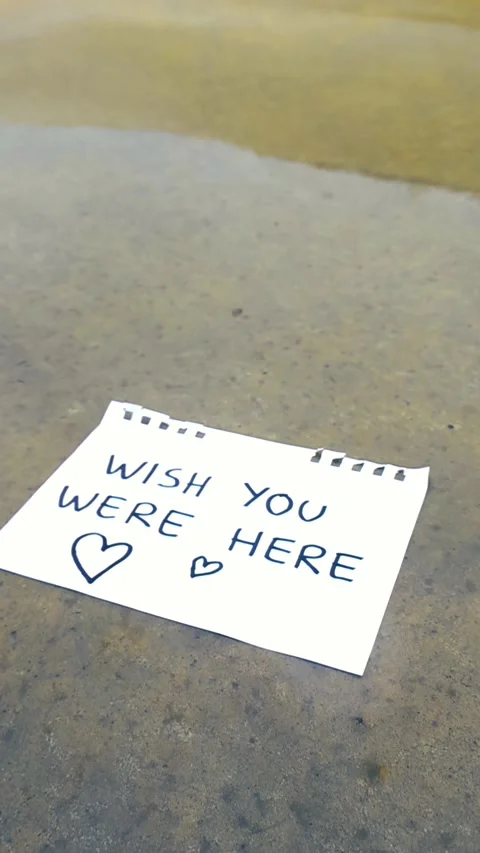 WISH YOU
WERE HERE